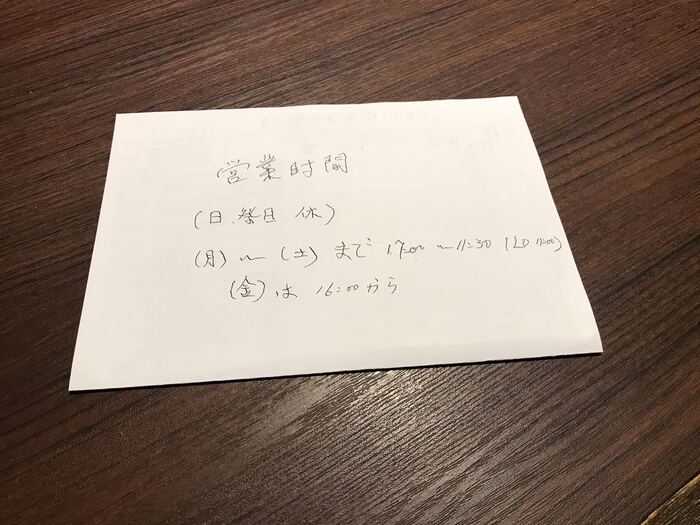 営業時間
(日.祭日 休)
(月)〜(土)まで 17:00〜11:30 (LO 11:00)
(金)は 16:00から